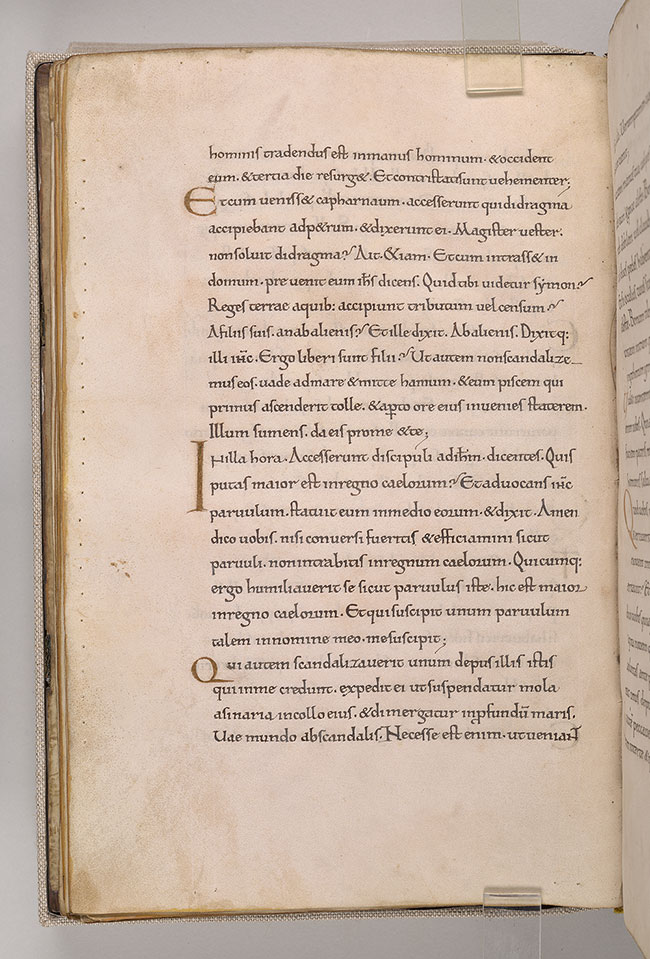 hominis tradendus est inmanus hominum · &occident
eum · &tertia die resurg& · Et contristatisunt vehementer;
Etcum veniss& capharnaum · accesserunt quididragma
accipiebant adp&rum · &dixerunt ei · Magister vester ·
nonsoluit didragma? Ait · &iam · Etcum intrass&in
domum · prevenit eum ihs dicens · Quidtibi videtur symon?
Reges terrae aquib: accipiunt tributum vel censum?
Afiliis suis · anabalienis? Etille dixit · Abalienis · Dixitq:
illi ihc · Ergo liberi sunt filii? Utautem nonscandalize
museos · vade admare &mitte hamum · &eum piscem qui
primus ascenderit tolle · &apto ore eius invenies staterem ·
Illum sumens · da eis prome &te;
Inilla hora · Accesserunt discipuli adihm · dicentes · Quis
putas maior est inregno caelorum? Etadvocans ihc
parvulum · statuit eum inmedio eorum · &dixit · Amen
dico vobis · nisi conversi fueritis &efficiamini sicut
parvuli · nonintrabitis inregnum caelorum · Quicumq:
ergo humiliaverit se sicut parvulus iste · hic est maior
inregno caelorum · Etquisuscipit unum parvulum
talem innomine meo · mesuscipit;
Qui autem scandalizaverit unum depusillis istis
quiinme credunt · expedit ei utsuspendatur mola
asinaria incollo eius · &dimergatur inpfundū maris ·
Uae mundo abscandalis · Necesse est enim · utveniant